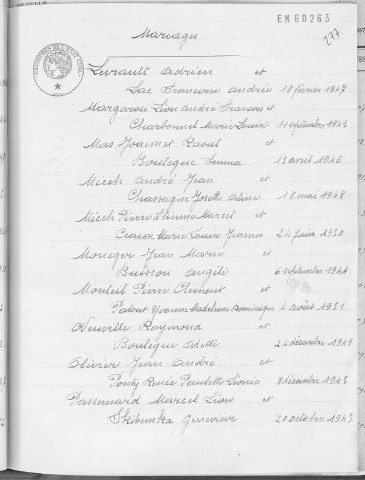 EM60263
277
Mariages
Levrault Adrien et
Lac Francine Andrée 18 février 1947
Margarou Léon André François et
Charbonnel Marie Louise 11 septembre 1943
Mas Joannet Raoul et
Boulègue Emma 13 avril 1946
André Jean et
Chassagne Josette Aline 18 mai 1948
Pierre Etienne Marcel et
Ceaux Marie Louise Jeanne 24 juin 1950
Moneger Jean Marie et
Buisson Angèle 6 septembre 1944
Monteil Pierre Clément et
Patout Yvonne Madeleine Dominique 4 août 1951
Neuville Raymond et
Boulègue Odette 24 décembre 1949
Olivier Jean André et
Renée Paulette Léonie 8 décembre 1945
Passenard Marcel Léon et
Skibinska Geneviève 20 octobre 1945